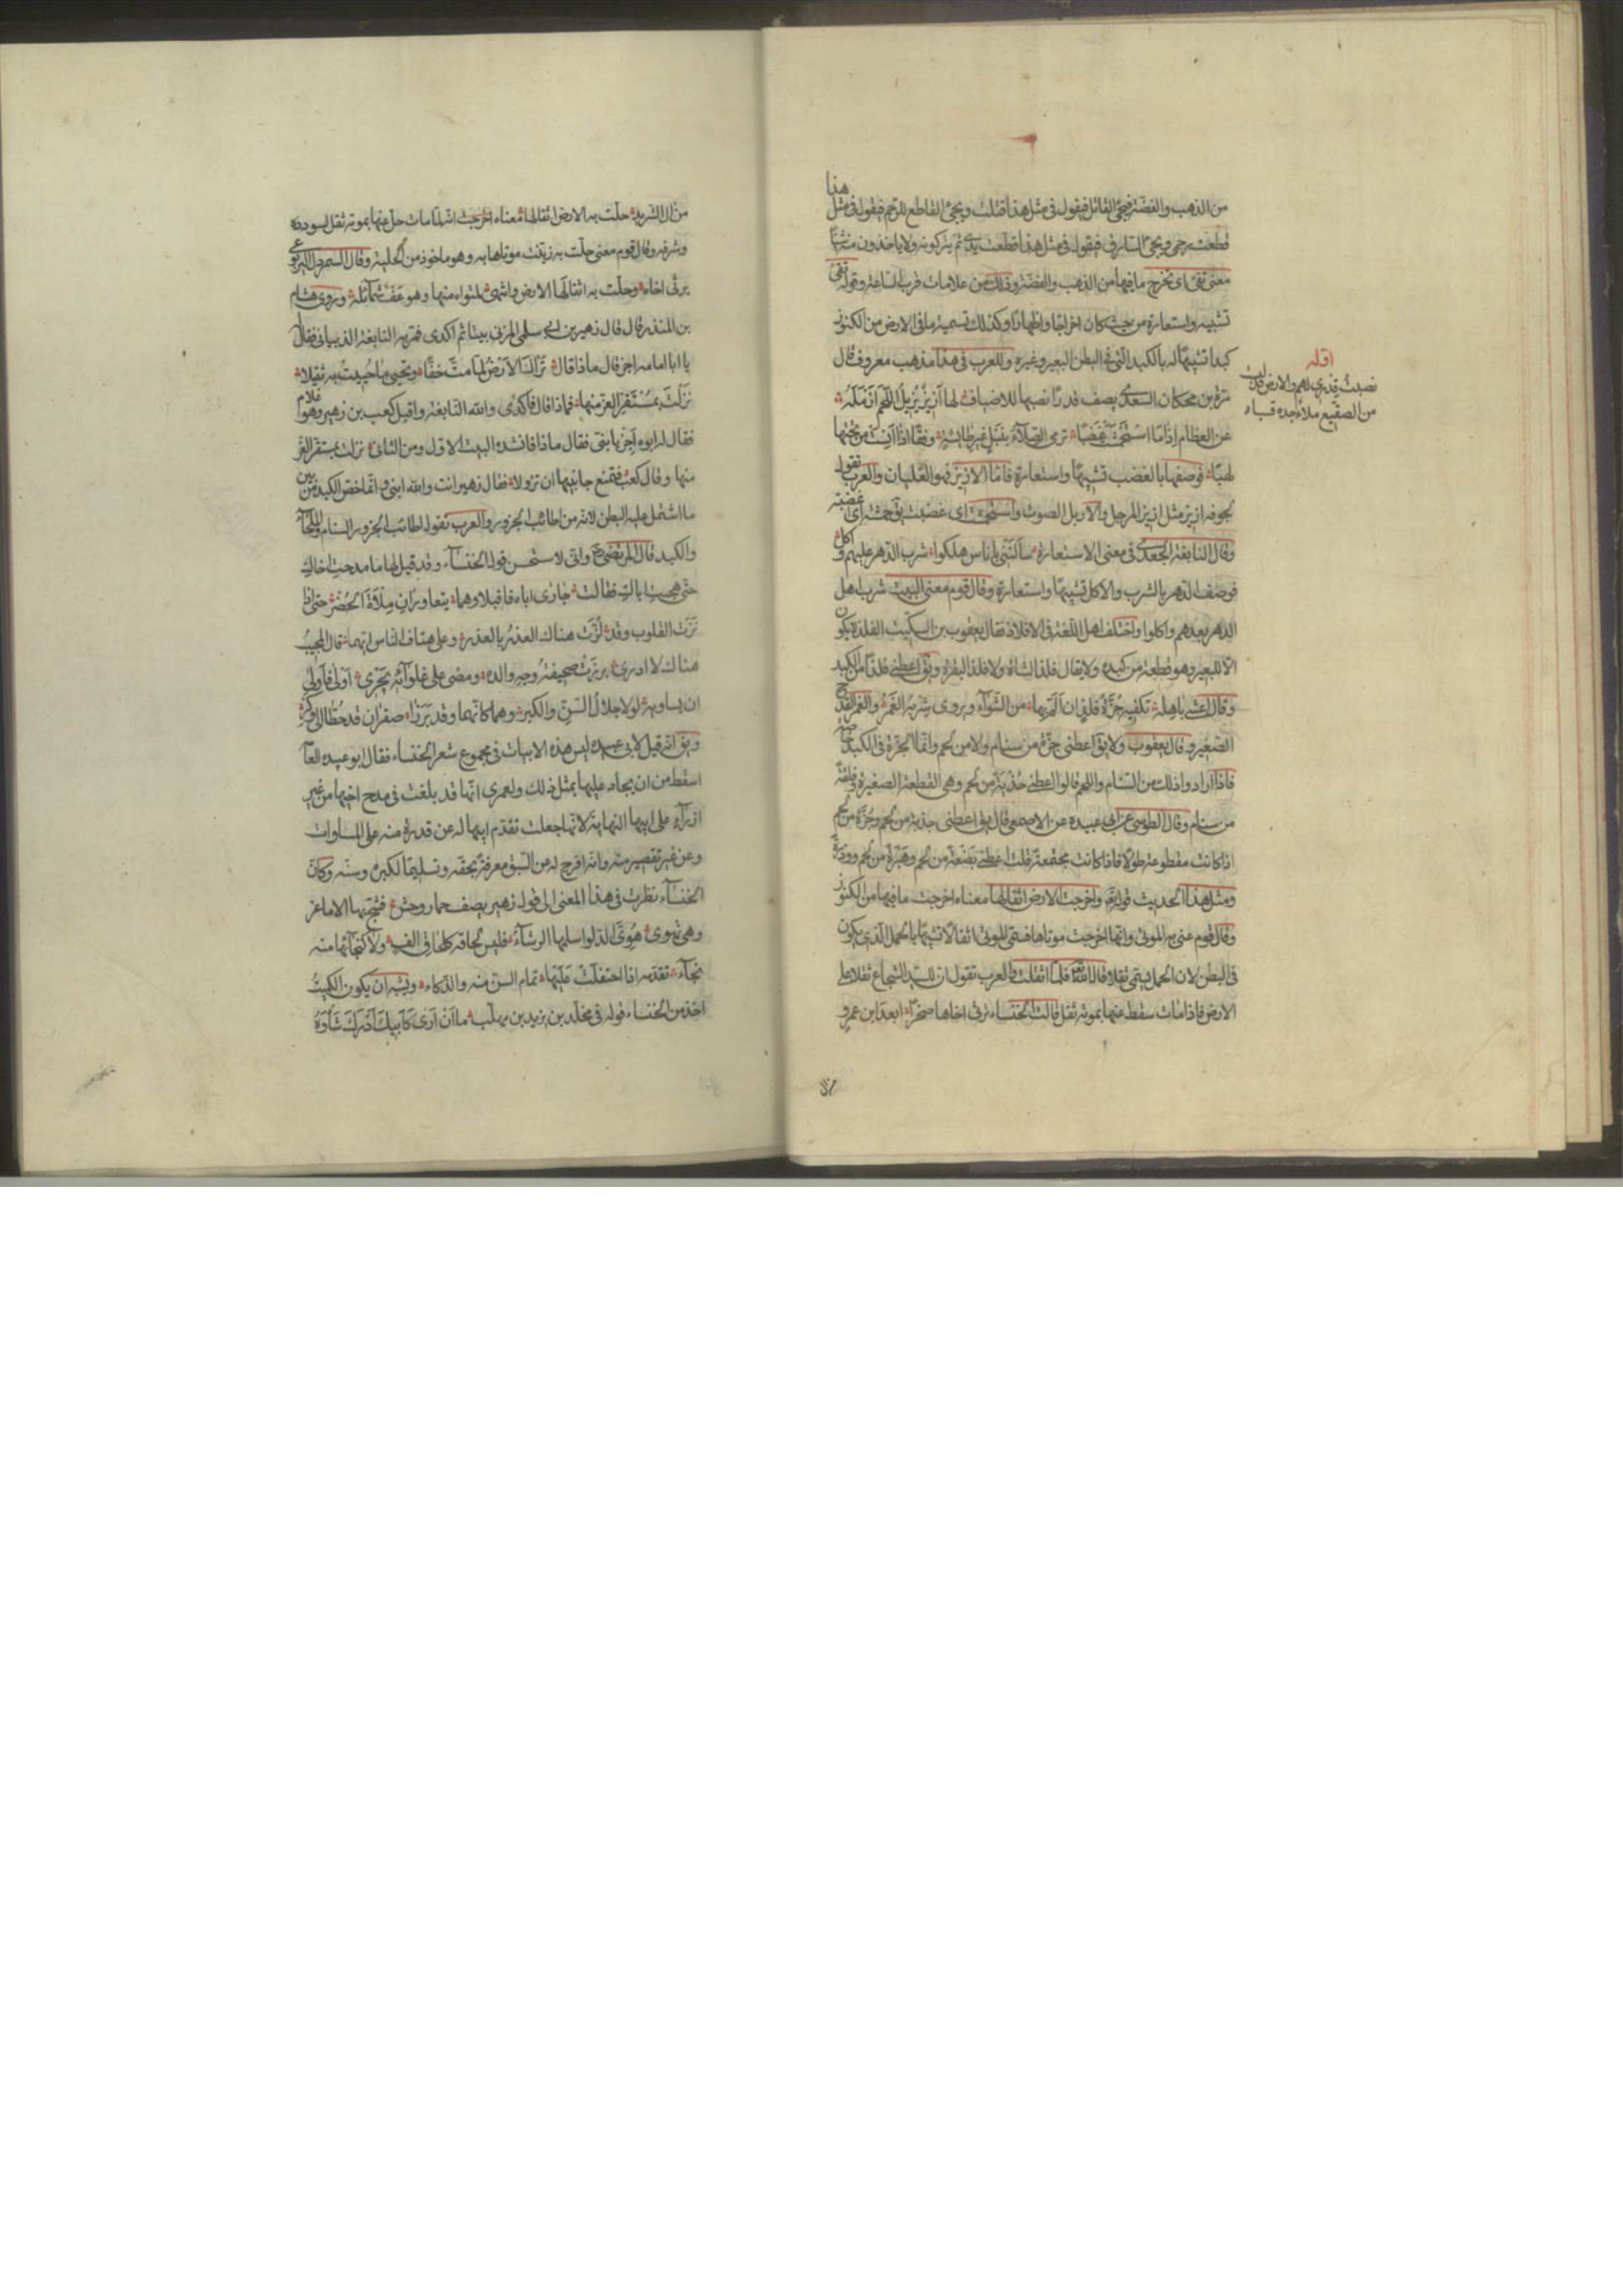 من الذهب والفضة فيجئ القاتل فيقول فى مثل هذا قتلت ويجئ القاطع للرحم فيقول فى مثل هذا
قطعت رحمى ويجئ السارق فيقول فى مثل هذا قطعت يدى ثم يتركونه ولا ياخذون منه شيئا
معنى تقئ اى تخرج ما فيها من الذهب والفضة وذلك من علامات قرب الساعة وقوله تقئ
تشبيه واستعارة من حيث كان اخراجا واظهارا وكذلك تسمية ما فى الارض من الكنوز
كبدا تشبيها له بالكبد التى فى البطن البعير وغيره وللعرب فى هذا مذهب معروف قال
مرة بن محكان السعدى يصف قدرا نصبها للاضياف لها ازيز يزيل اللحم ازمله
عن العظام اذا ما استحمشت غضبا ترمى الصلاة بنبل غير طائشة وفقا اذا آنست من تحتها
لهبا فوصفها بالغضب تشبيها واستعارة فاما الازيز فهو الغليان والعرب تقول
لجوفه ازيز مثل ازيز المرجل والازمل الصوت واستحمشت اى غضبت يق حمشته اى غضبته
وقال النابغة الجعدى فى معنى الاستعارة سألتنى باناس هلكوا شرب الدهر عليهم واكل
فوصف الدهر بالشرب والاكل تشبيها واستعارة وقال قوم معنى البيت شرب اهل
الدهر بعدهم واكلوا واختلف اهل اللغة فى الافلاذ فقال يعقوب بن السكيت الفلذ لا يكون
الا للبعير وهو قطعة من كبده ولا يقال فلذ الشاة ولا فلذ البقرة ويق اعطنى فلذا من الكبد
وقال اعشى باهلة تكفيه حزة فلذ ان الم بها من الشواء ويروى شربه الغمر والغمر القدح
الصغير وقال يعقوب ولا يق اعطنى حزة من سنام ولا من لحم وانما الحزة فى الكبد خاصة
فاذا ارادوا ذلك من السنام واللحم قالوا اعطنى حذية من لحم وهى القطعة الصغيرة فلقة
من سنام وقال الطوسى عن ابى عبيدة عن الاصمعى قال يق اعطنى حذية من لحم وحزة من لحم
اذا كانت مقطوعة طولا فاذا كانت مجتمعة قلت اعطنى بضعة من لحم وهبرة من لحم ووذرة
ومثل هذا الحديث قوله تع واخرجت الارض اثقالها معناه اخرجت ما فيها من الكنوز
وقال قوم عنى به الموتى وانها اخرجت موتاها فسمى الموتى اثقالا تشبيها بالحمل الذى يكون
فى البطن لان الحمل يسمى ثقلا قال الله تع فلما اثقلت والعرب تقول ان للسيد الشجاع ثقلا على
الارض فاذا مات سقط عنها بموته ثقل قالت الخنساء ترثى اخاها صخرا ابعد ابن عمرو
اوله
نصبت قدرى لهم والارض قد لبست
من الصقيع ملاء جده قباء
من ال الشريد حلت به الارض اثقالها معناه اخرجت انه لما مات حل عنها بموته ثقل لسودده
وشرفه وقال قوم معنى حلت به زينت موتاها به وهو ماخوذ من الحلية وقال السمردل اليربوعى
يرثى اخاه وحلت به اثقالها الارض وانتهى لمثواه منها وهو عف شمائله وروى هشام
بن المنذر قال قال زهير بن ابى سلمى المزنى بيتا ثم اكدى فمر به النابغة الذبيانى فقال له
يا ابا امامه اجز قال ماذا قال تزال الارض اما مت خفا وتحيى ما حييت به ثقيلا
نزلت بمستقر العز منها فماذا قال فاكدى والله النابغة واقبل كعب بن زهير وهو غلام
فقال له ابوه اجز يا بنى فقال ماذا فانشده البيت الاول ومن الثانى نزلت بمستقر العز
منها وقال كعب فتمنع جانبيها ان تزولا فقال زهير انت والله ابنى وانما خص الكبد من بين
ما اشتمل عليه البطن لانه من اطائب الجزور والعرب تقول اطائب الجزور السنام والملحاء
والكبد قال المرتضى رض وانى لاستحسن قول الخنساء وقد قيل لها ما مدحت اخاك
حتى هجيت اباك فقالت جارى اباه فاقبلا وهما يتعاوران ملاءة الحضر حتى اذا
نزت القلوب وقد لزت هناك العذر بالعذر وعلا هتاف الناس ايهما قال المجيب
هناك لا ادرى برزت صحيفة وجه والده ومضى على غلوائه يجرى اولى فاولى
ان يساويه لولا جلال السن والكبر وهما كانهما وقد برزا صقران قد حطا الى وكر
ويق انه قيل لابى عبيدة ليس هذه الابيات فى مجموع شعر الخنساء فقال ابو عبيدة العامة
اسقط من ان يجاد عليها بمثل ذلك ولعمرى انها قد بلغت فى مدح اخيها من غير
ازراء على ابيها النهاية لانها جعلت تقدم ابيها له عن قدرة منه على المساوات
وعن غير تقصير منه وانه افرج له عن السبق معرفة بحقه وتسليما لكبره وسنه وكان
الخنساء نظرت فى هذا المعنى الى قول زهير يصف حمار وحش فشج بها الاماعز
وهى تهوى هوى الدلو اسلمها الرشاء فليس لحاقه كلحاق الف ولا كنجائها منه
نجاء تقدمه اذا احتفلت عليها تمام السن منه والذكاء ويشبه ان يكون الكميت
اخذ من الخنساء قوله فى مخلد بن يزيد بن مهلب ما ان ارى كابيك ادرك شاوه